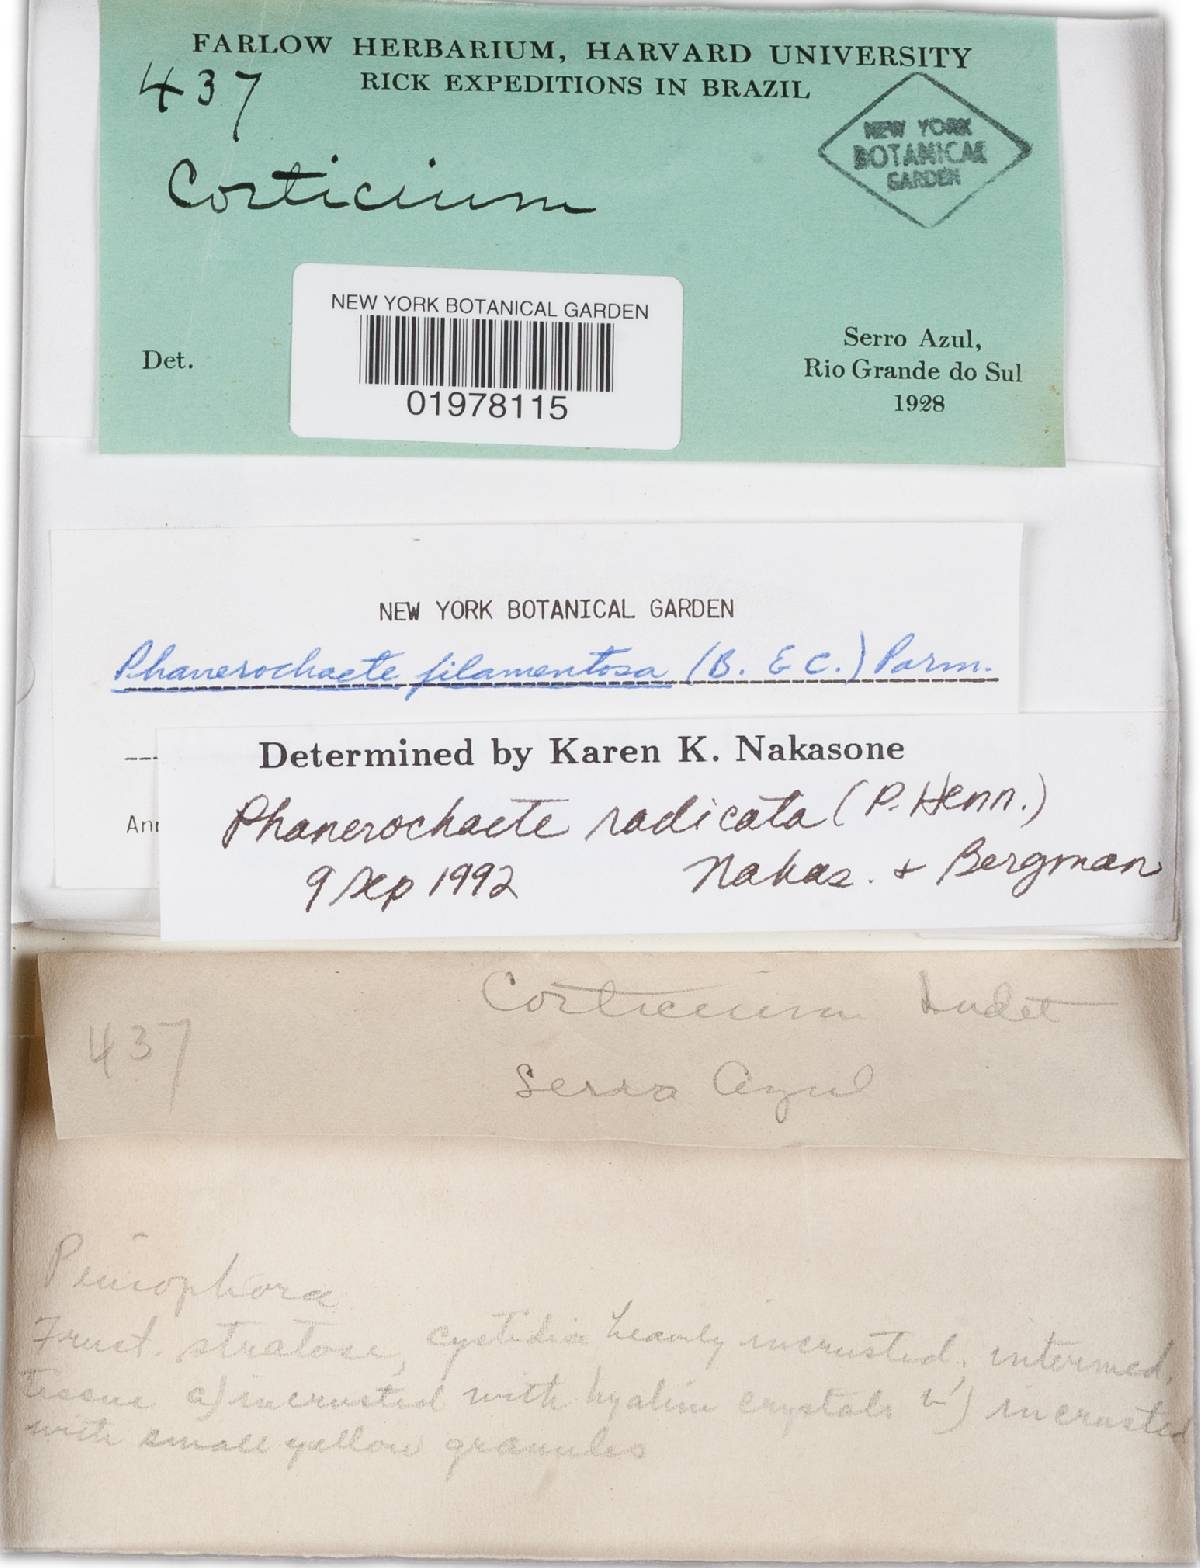 FARLOW HERBARIUM, HARVARD UNIVERSITY
RICK EXPEDITIONS IN BRAZIL
437
NEW YORK
BOTANICAL
GARDEN
Corticium
NEW YORK BOTANICAL GARDEN
01978115
Det.
Serro Azul,
Rio Grande do Sul
1928
NEW YORK BOTANICAL GARDEN
Phanerochaete filamentosa (B. & C.) Parm.
Determined by Karen K. Nakasone
Ann
Phanerochaete radicata (P. Henn.)
9 Sep 1992 Nakas. + Bergman
Corticium Indet
437
Serro Azul
Peniophora
Fruct. stratose, cystidia heavily incrusted, intermed.
tissue a) incrusted with hyalin crystals b) incrusted
with small yellow granules